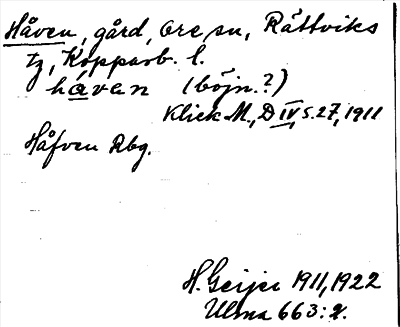 Håven, gård, Ore sn, Rättviks
tg, Kopparb. l.
håvan (böjn.?)
Klick M., D IV, s. 27, 1911
Håfven Rbg.
H. Geijer 1911, 1922
Ulma 663:2.